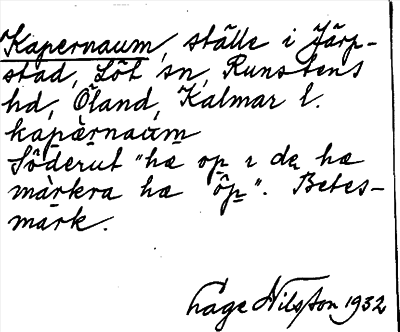 Kapernaum, ställe i Järp-
stad, Löt sn, Runstens
hd, Öland, Kalmar l.
kapàrnaùm
Söderut "hæ op ı de hæ
màrkra hæ öp". Betes-
mark.
Åage Nilsson 1932